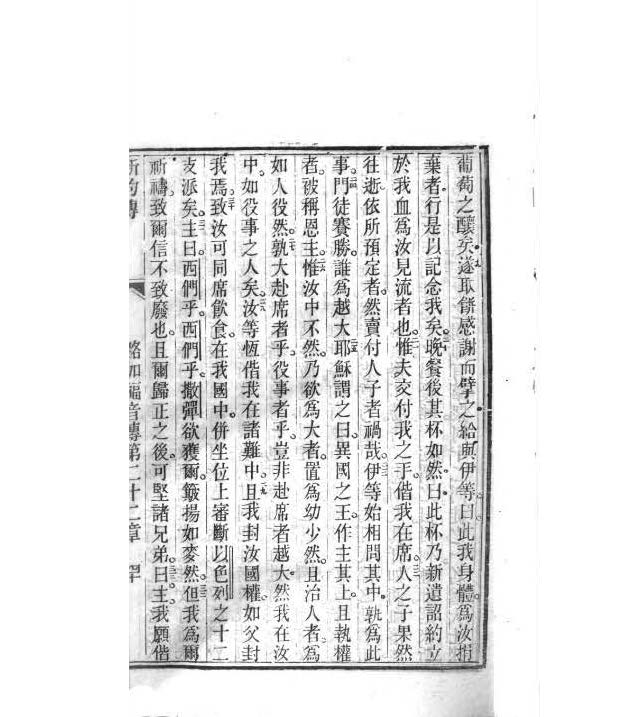 葡萄之釀矣遂取餅感謝而擘之給與伊等。曰此我身體。爲汝捐
棄者行是以記念我矣。晚餐後其杯如然曰此杯乃新遺詔約立
於我血爲汝見流者也。惟夫交付我之手偕我在席。人之子果然
往逝依所預定者。然賣付人子者禍哉。伊等始相問其中。孰爲此
事。門徒賽勝。誰爲越大。耶穌謂之曰。異國之王作主其上。且執權
者。被稱恩主。惟汝中不然。乃欲爲大者。置爲幼少然。且治人者爲
如人役然。孰大赴席者乎。役事者乎。豈非赴席者越大。然我在汝
中。如役事之人矣。汝等恆偕我在諸難中。且我封汝國權。如父封
我焉。致汝可同席飲食。在我國中。併坐位上審斷以色列之十二
支派矣。主曰西們乎。西們乎。撒彈欲獲爾。簸揚如麥然。但我爲爾
祈禱。致爾信不致廢也。且爾歸正之後。可堅諸兄弟。曰主。我願偕
路加福音傳第二十二章